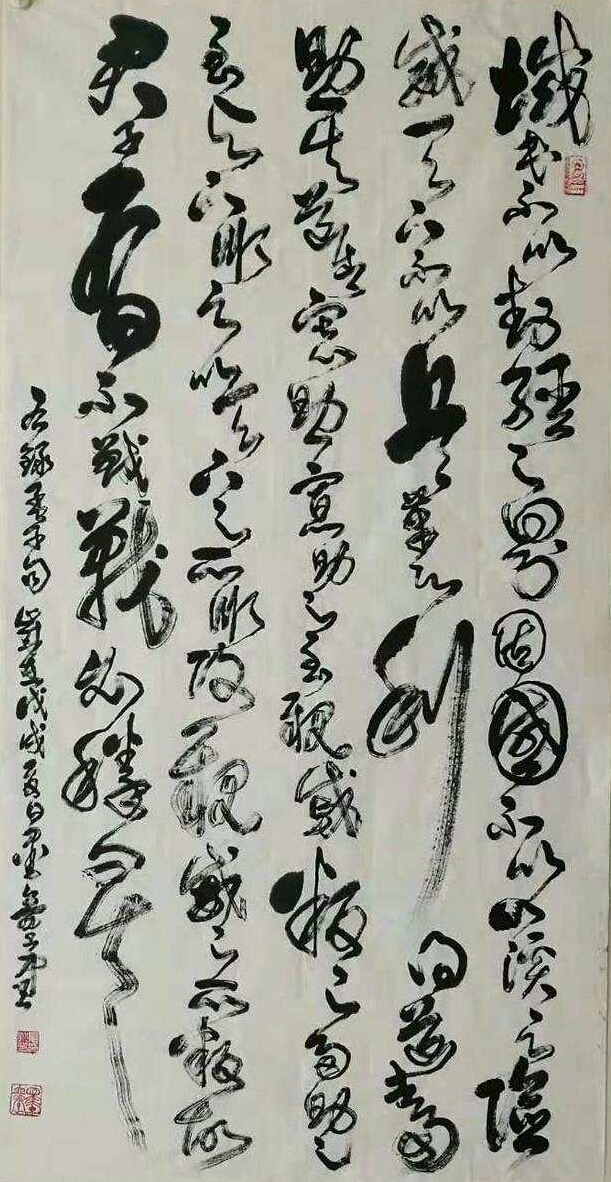 域民不以封疆之界固國不以山溪之險
威天下不以兵革之利得道者多
助失道者寡助寡助之至親戚叛之多助之
至天下順之以天下之所順攻親戚之所叛故
君子有不戰戰必勝矣
右錄孟子句 歲在戊戌夏日